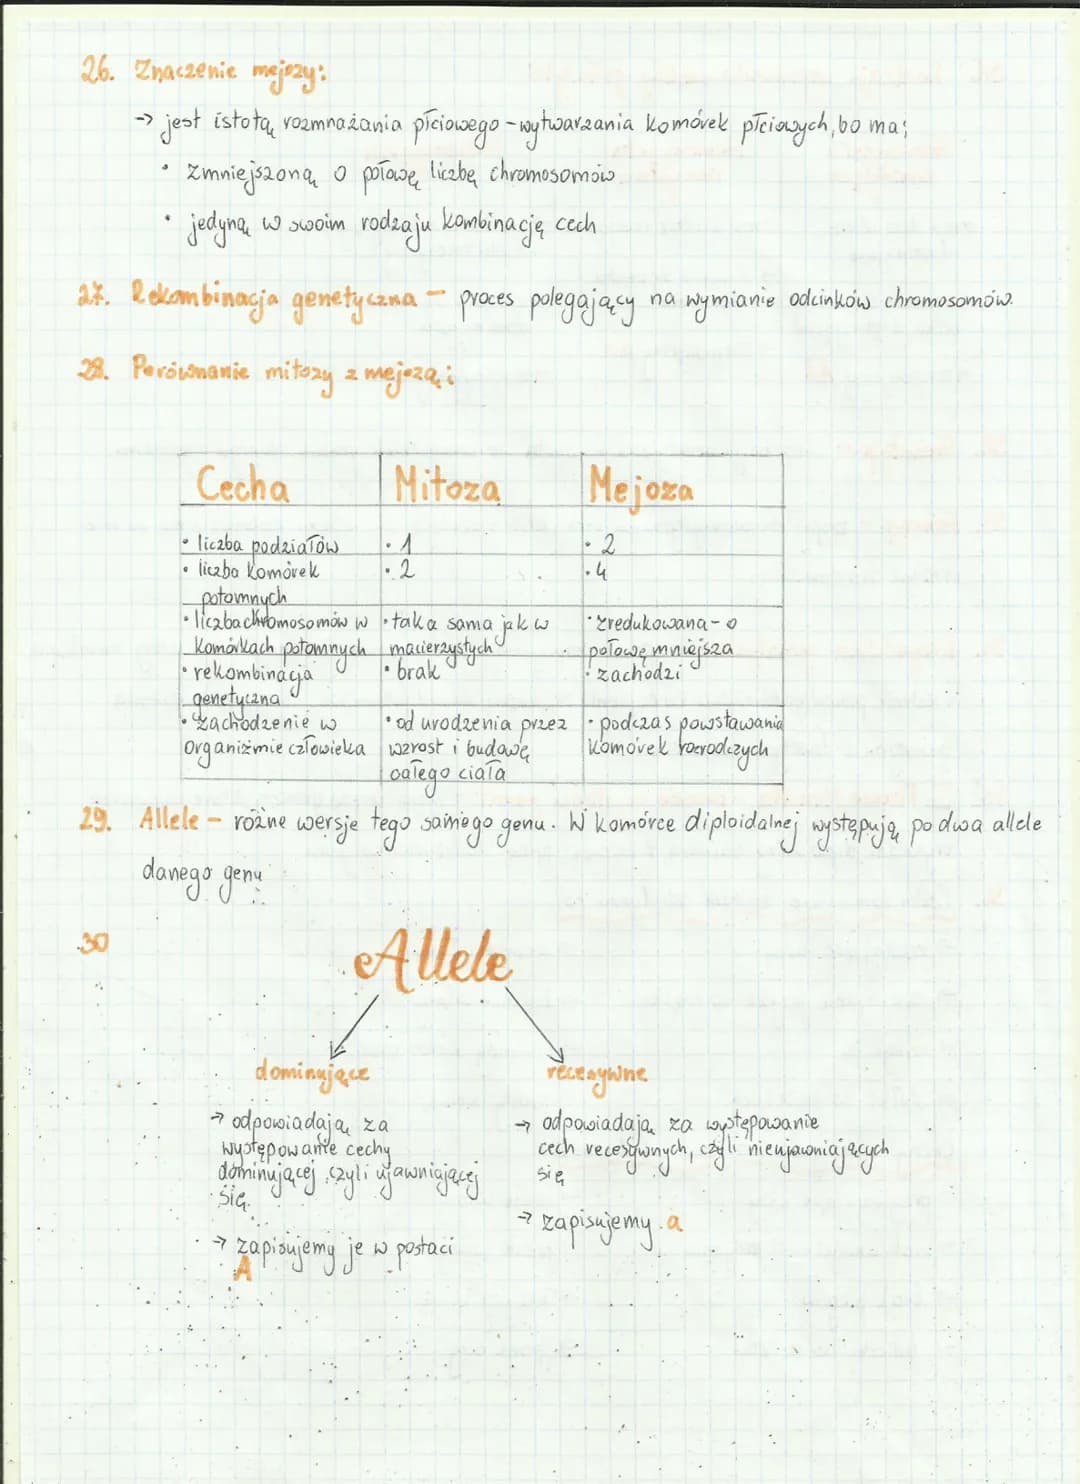 26. Znaczenie mejozy:
→ jest istotą rozmnażania płciowego - wytwarzania komórek płciowych, bo ma:
• zmniejszoną o połowę liczbę chromosomów
• jedyną w swoim rodzaju kombinację cech
27. Rekombinacja genetyczna - proces polegający na wymianie odcinków chromosomów.
28. Porównanie mitozy z mejozą:
Cecha Mitoza Mejoza
• liczba podziałów • 1 • 2
• liczba komórek • 2 • 4
potomnych
• liczba chromosomów w • taka sama jak w • zredukowana - o
komórkach potomnych macierzystych połowę mniejsza
• rekombinacja • brak • zachodzi
genetyczna
• zachodzenie w • od urodzenia przez • podczas powstawania
organizmie człowieka wzrost i budowę komórek rozrodczych
całego ciała
29. Allele - różne wersje tego samego genu. W komórce diploidalnej występują po dwa allele
danego genu
30
Allele
dominujące recesywne
→ odpowiadają za → odpowiadają za występowanie
występowanie cechy cech recesywnych, czyli nieujawniających
dominującej, czyli ujawniającej się
się.
→ zapisujemy a
→ zapisujemy je w postaci
A